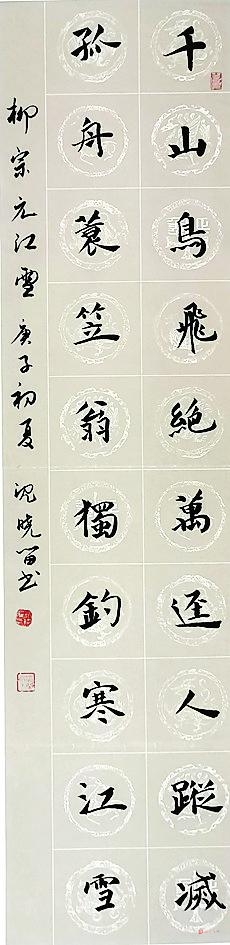 千山鳥飛絕萬逕人蹤滅
孤舟蓑笠翁獨釣寒江雪
柳宗元江雪 庚子初夏 沈曉笛书